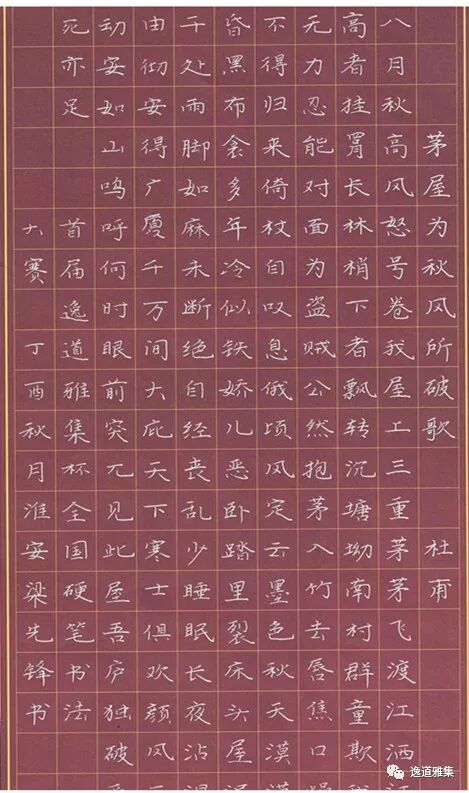 茅屋为秋风所破歌 杜甫
八月秋高风怒号卷我屋上三重茅茅飞渡江洒
高者挂罥长林梢下者飘转沉塘坳南村群童欺
无力忍能对面为盗贼公然抱茅入竹去唇焦口燥
不得归来倚杖自叹息俄顷风定云墨色秋天漠漠
昏黑布衾多年冷似铁娇儿恶卧踏里裂床头屋
干处雨脚如麻未断绝自经丧乱少睡眠长夜沾湿
由彻安得广厦千万间大庇天下寒士俱欢颜风
动安如山呜呼何时眼前突兀见此屋吾庐独破
死亦足 首届逸道雅集杯全国硬笔书法
大赛 丁酉秋月淮安梁先锋书
逸道雅集